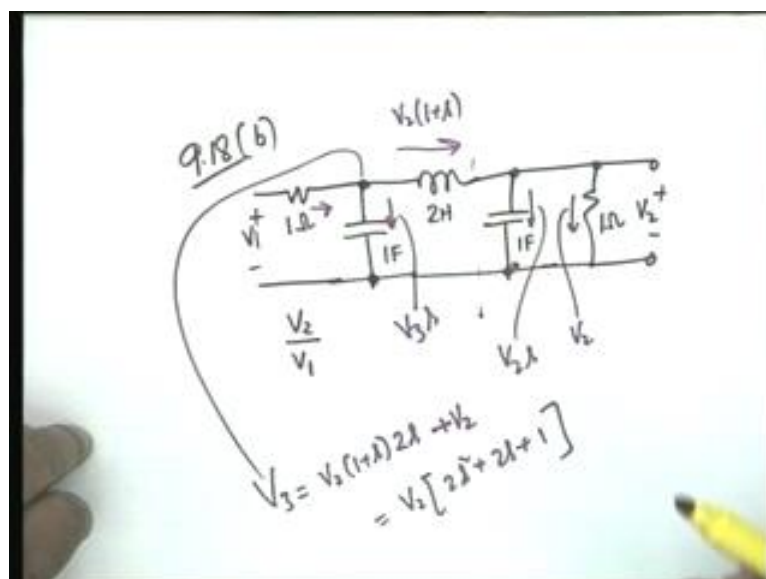 9.18(b)
V₂(1+s)
+
V₁
-
1Ω
1F
2H
1F
1Ω
V₂
+
-
V₂
V₁
V₃s
V₂s
V₂
V₃ = V₂(1+s)2s + V₂
= V₂[2s²+2s+1]